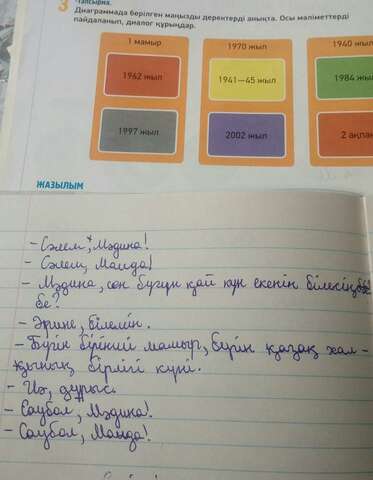 3 -тапсырма.
Диаграммада берілген маңызды деректерді анықта. Осы мәліметтерді
пайдаланып, диалог құрыңдар.
1 мамыр
1970 жыл
1940 жыл
1962 жыл
1941—45 жыл
1984 жы
1997 жыл
2002 жыл
2 ақпан
ЖАЗЫЛЫМ
- Сәлем, Мәдина!
- Сәлем, Манда!
- Мәдина, сен бүгүн қай күн екенін білесің
бе?
- Әрине, білемін.
- Бүгін бірінші мамыр, бүгін қазақ хал-
қының бірлігі күні.
- Иә, дұрыс.
- Саубол, Мәдина!
- Саубол, Манда!